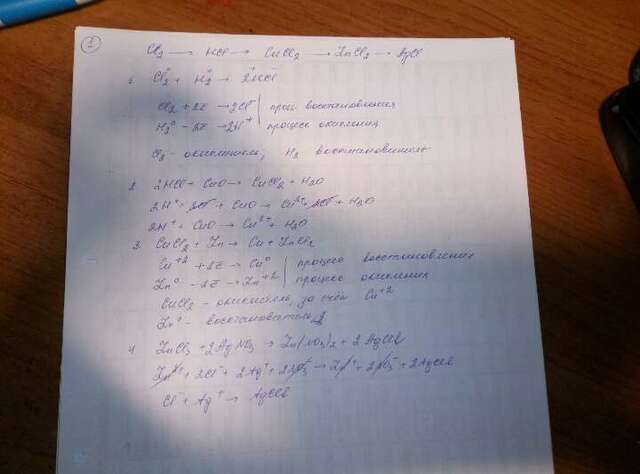 1
Cl2 → HCl → CuCl2 → ZnCl2 → AgCl
1. Cl2⁰ + H2⁰ → 2HCl
Cl2 + 2e → 2Cl⁻ | проц восстановления
H2⁰ - 2e → 2H⁺ | процесс окисления
Cl2 - окислитель, H2 восстановитель
2. 2HCl + CuO → CuCl2 + H2O
2H⁺ + 2Cl⁻ + CuO → Cu²⁺ + 2Cl⁻ + H2O
2H⁺ + CuO → Cu²⁺ + H2O
3. CuCl2 + Zn → Cu + ZnCl2
Cu⁺² + 2e → Cu⁰ | процесс восстановления
Zn⁰ - 2e → Zn⁺² | процесс окисления
CuCl2 - окислитель, за счёт Cu⁺²
Zn⁰ - восстановитель
4. ZnCl2 + 2AgNO3 → Zn(NO3)2 + 2AgCl↓
Zn²⁺ + 2Cl⁻ + 2Ag⁺ + 2NO3⁻ → Zn²⁺ + 2NO3⁻ + 2AgCl↓
Cl⁻ + Ag⁺ → AgCl↓